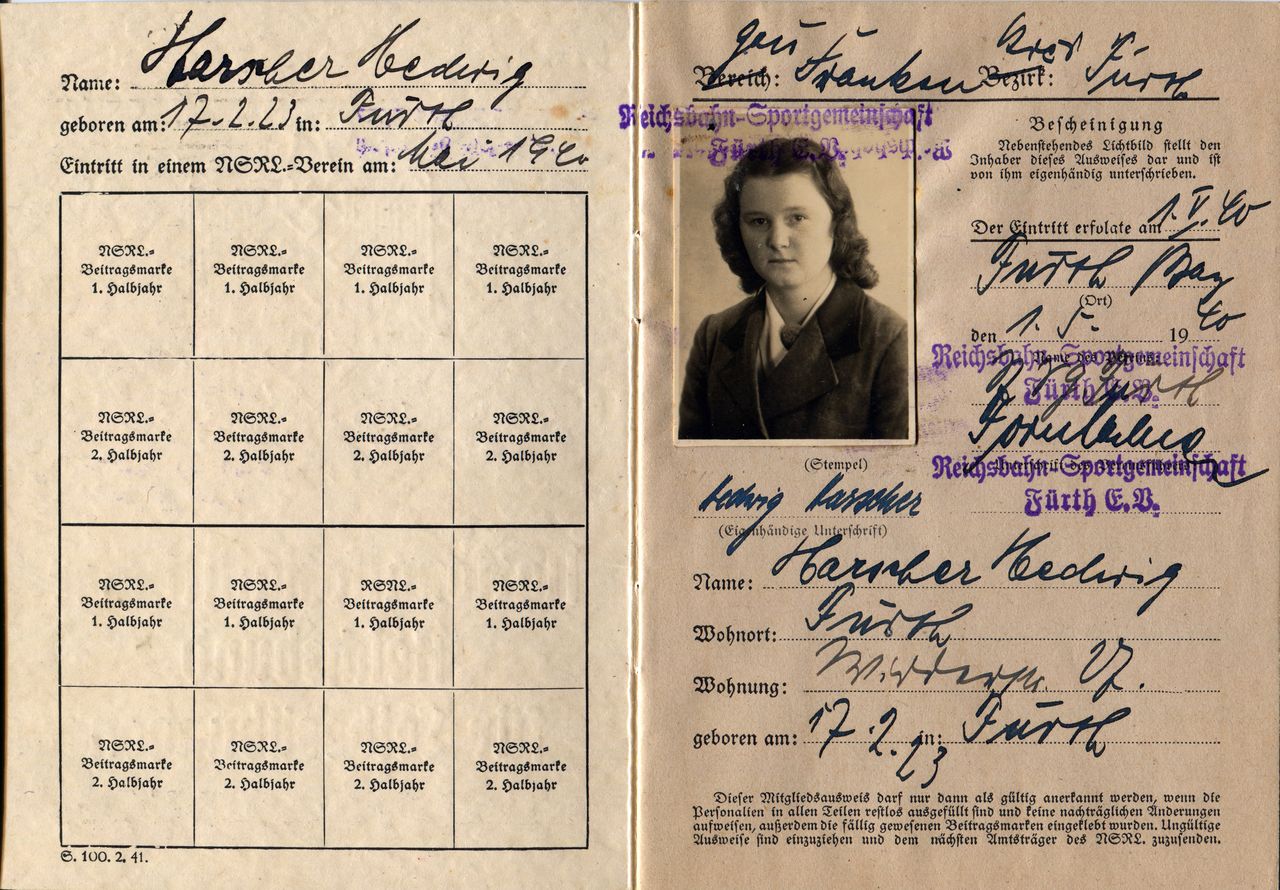 Name: Harscher Hedwig
geboren am: 17.2.23 in: Fürth
Eintritt in einem NSRL.=Verein am: Mai 1940
NSRL.= NSRL.= NSRL.= NSRL.=
Beitragsmarke Beitragsmarke Beitragsmarke Beitragsmarke
1. Halbjahr 1. Halbjahr 1. Halbjahr 1. Halbjahr
NSRL.= NSRL.= NSRL.= NSRL.=
Beitragsmarke Beitragsmarke Beitragsmarke Beitragsmarke
2. Halbjahr 2. Halbjahr 2. Halbjahr 2. Halbjahr
NSRL.= NSRL.= RSNL.= NSRL.=
Beitragsmarke Beitragsmarke Beitragsmarke Beitragsmarke
1. Halbjahr 1. Halbjahr 1. Halbjahr 1. Halbjahr
NSRL.= NSRL.= NSRL.= NSRL.=
Beitragsmarke Beitragsmarke Beitragsmarke Beitragsmarke
2. Halbjahr 2. Halbjahr 2. Halbjahr 2. Halbjahr
S. 100. 2. 41.
Gau Kreis
Bereich: Franken Bezirk: Fürth
Reichsbahn-Sportgemeinschaft
Fürth E.V.
Bescheinigung
Nebenstehendes Lichtbild stellt den
Inhaber dieses Ausweises dar und ist
von ihm eigenhändig unterschrieben.
Der Eintritt erfolgte am 1.V.40
Fürth Bay
(Ort)
den 1. 5. 1940
Name des Vereins:
Reichsbahn-Sportgemeinschaft
Fürth E.V.
Fürth
Reichsbahn-Sportgemeinschaft
Fürth E.V.
(Stempel)
Hedwig Harscher
(Eigenhändige Unterschrift)
Name: Harscher Hedwig
Wohnort: Fürth
Wohnung: 27.
geboren am: 17.2.23 in: Fürth
Dieser Mitgliedsausweis darf nur dann als gültig anerkannt werden, wenn die
Personalien in allen Teilen restlos ausgefüllt sind und keine nachträglichen Änderungen
aufweisen, außerdem die fällig gewesenen Beitragsmarken eingeklebt wurden. Ungültige
Ausweise sind einzuziehen und dem nächsten Amtsträger des NSRL. zuzusenden.